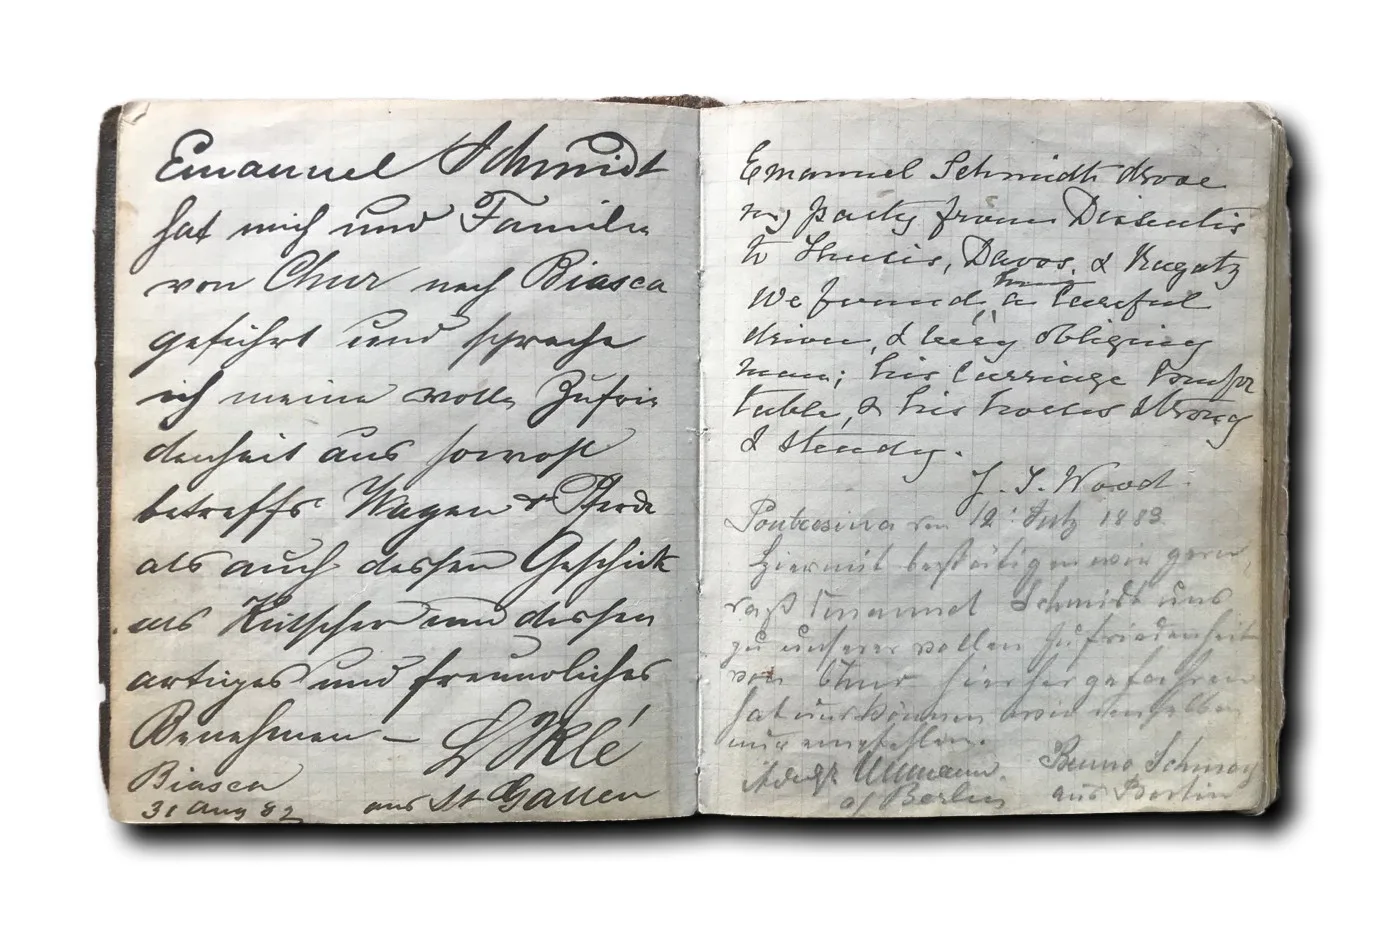 Emanuel Schmidt
hat mich und Familie
von Chur nach Biasca
geführt und spreche
ich meine volle Zufrie
denheit aus sowohl
betreffs Wagen & Pferde
als auch dessen Geschick
als Kutscher und dessen
artiges und freundliches
Benehmen –
Biasca
31 Aug 82
aus St Gallen
Emanuel Schmidt drove
my party from Disentis
to Thusis, Davos, & Ragatz
We found him a careful
driver, & very obliging
man; his carriage comfor
table, & his horses strong
& steady.
J. S. Wood.
Pontresina den 12. July 1883
Hiermit bestätigen wir gern,
daß Emanuel Schmidt uns
zu unserer vollen Zufriedenheit
von Chur hierher gefahren
hat und können wir denselben
nur empfehlen.
Ullmann.
Berlin
Bruno
aus Berlin